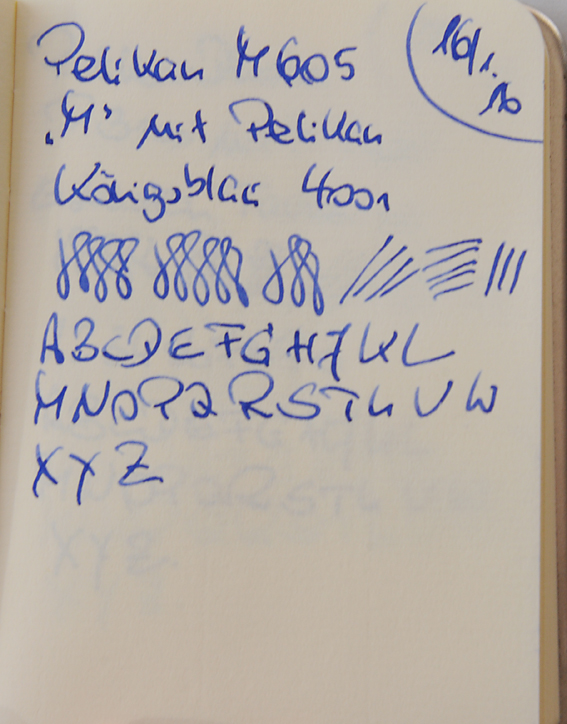 Pelikan M605
16/1.10
"M" mit Pelikan
Königsblau 4001
ABCDEFGHJKL
MNOPQRSTUVW
XYZ